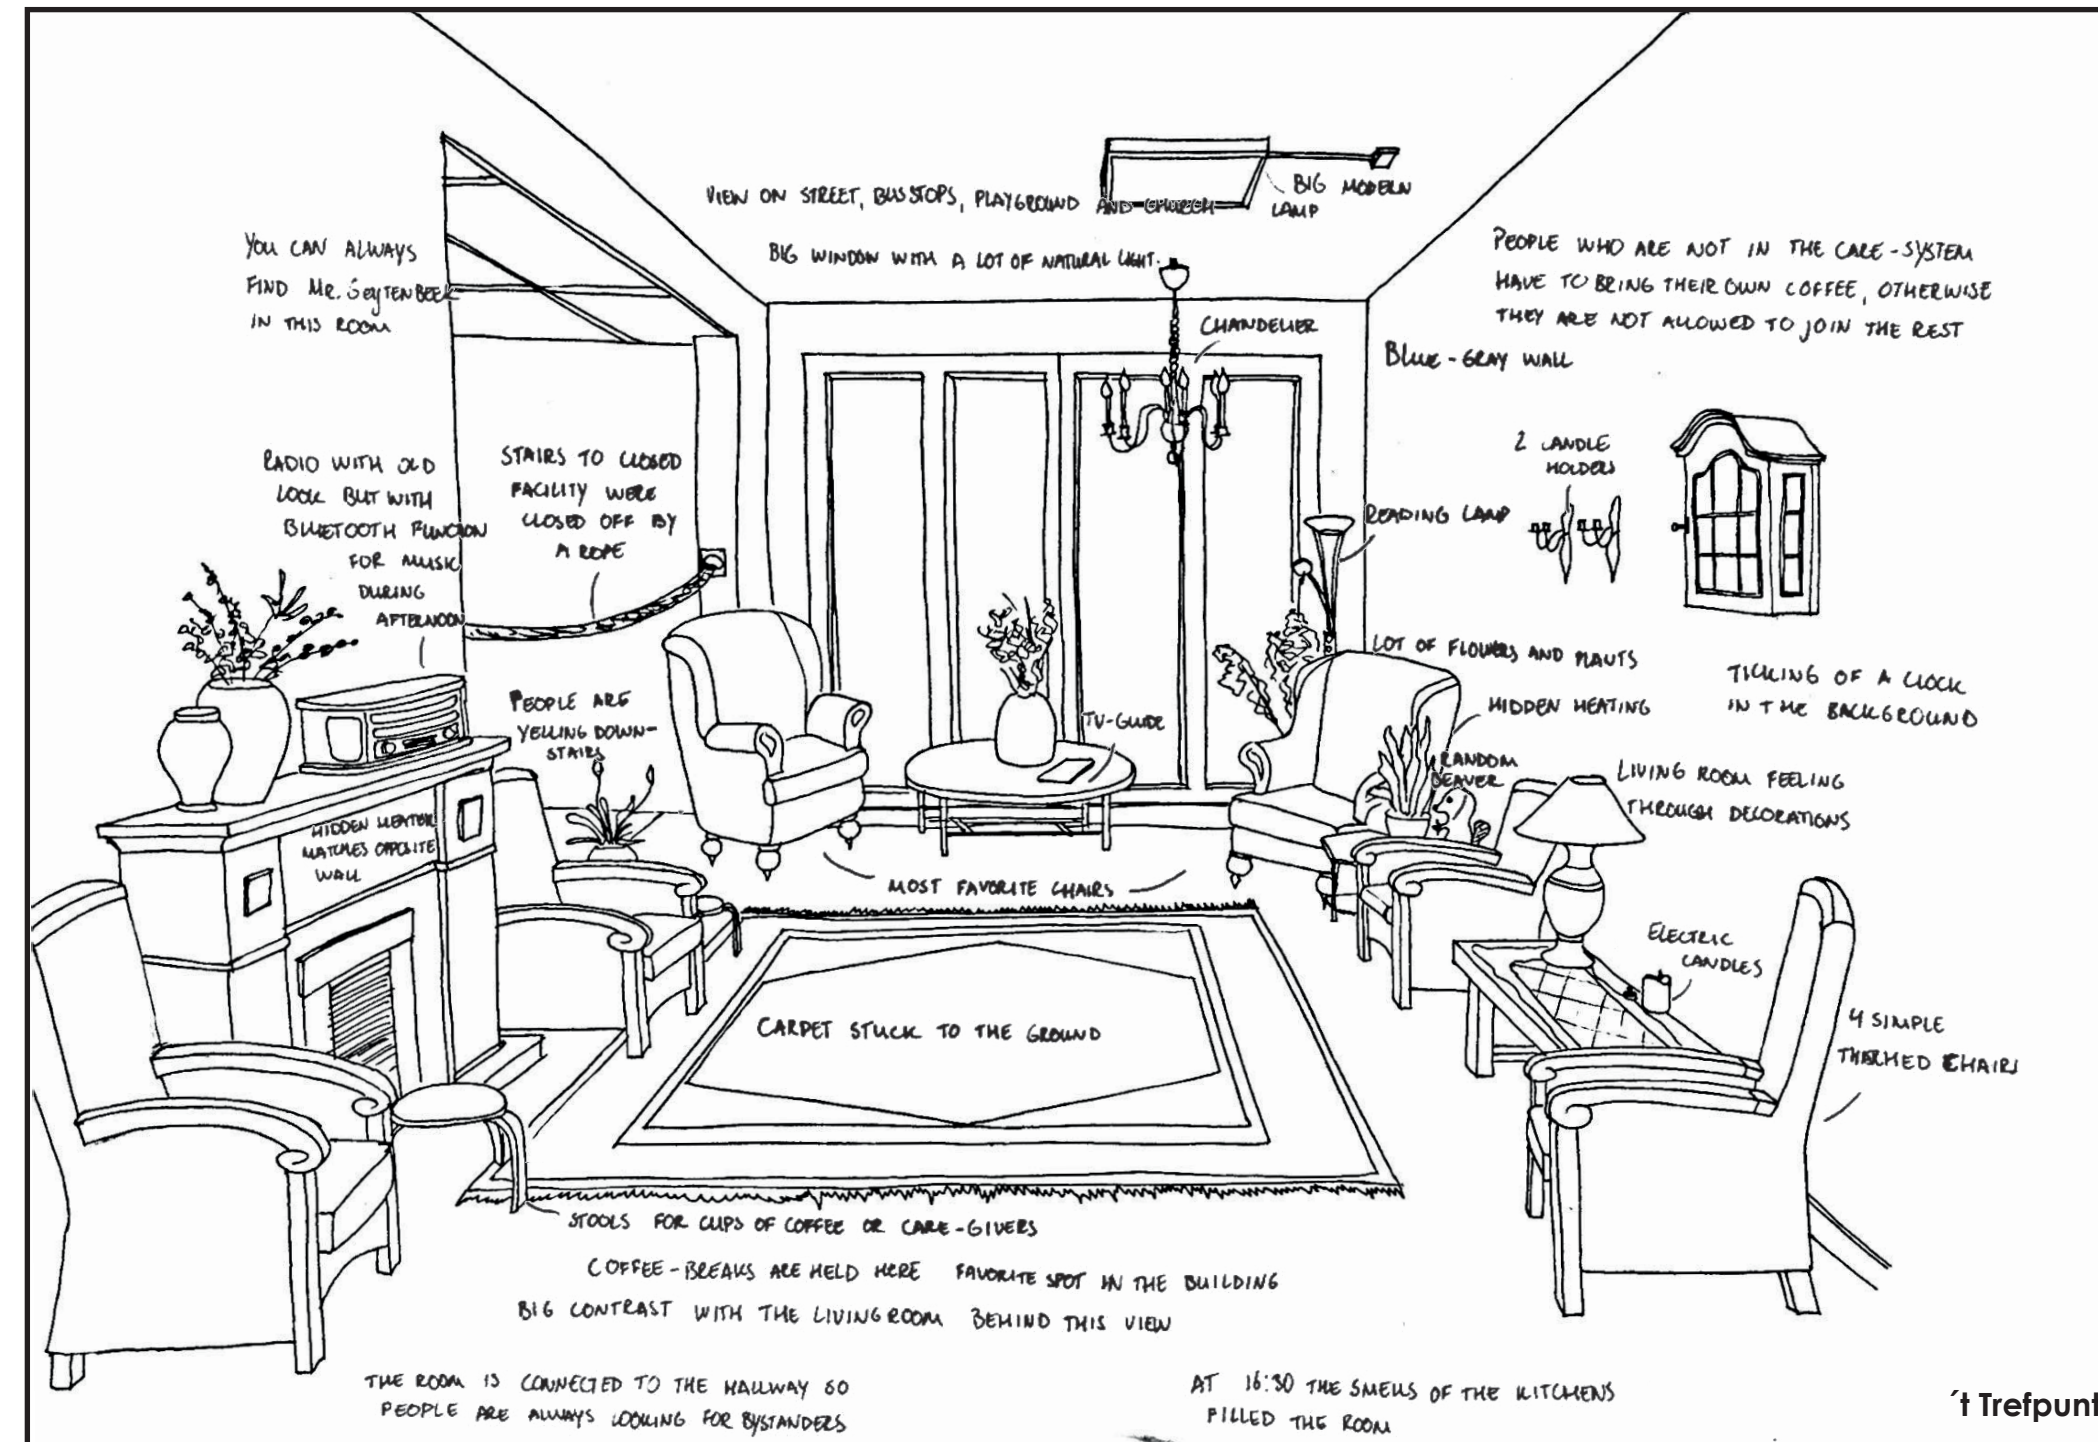 VIEW ON STREET, BUSSTOPS, PLAYGROUND AND CHURCH
BIG MODERN
LAMP
BIG WINDOW WITH A LOT OF NATURAL LIGHT.
YOU CAN ALWAYS
FIND MR. SEYTENBEEK
IN THIS ROOM
PEOPLE WHO ARE NOT IN THE CARE-SYSTEM
HAVE TO BRING THEIR OWN COFFEE, OTHERWISE
THEY ARE NOT ALLOWED TO JOIN THE REST
CHANDELIER
BLUE-GRAY WALL
RADIO WITH OLD
LOOK BUT WITH
BLUETOOTH FUNCION
FOR MUSIC
DURING
AFTERNOON
STAIRS TO CLOSED
FACILITY WERE
CLOSED OFF BY
A ROPE
2 CANDLE
HOLDERS
READING LAMP
LOT OF FLOWERS AND PLANTS
TICKING OF A CLOCK
IN THE BACKGROUND
HIDDEN HEATING
PEOPLE ARE
YELLING DOWN-
STAIRS
TV-GUIDE
RANDOM
BEAVER
LIVING ROOM FEELING
THROUGH DECORATIONS
HIDDEN HEATER
MATCHES OPPOSITE
WALL
MOST FAVORITE CHAIRS
ELECTRIC
CANDLES
CARPET STUCK TO THE GROUND
4 SIMPLE
CHAIRS
STOOLS FOR CUPS OF COFFEE OR CARE-GIVERS
COFFEE-BREAKS ARE HELD HERE FAVORITE SPOT IN THE BUILDING
BIG CONTRAST WITH THE LIVINGROOM BEHIND THIS VIEW
THE ROOM IS CONNECTED TO THE HALLWAY SO
PEOPLE ARE ALWAYS LOOKING FOR BYSTANDERS
AT 16:30 THE SMELLS OF THE KITCHENS
FILLED THE ROOM
´t Trefpunt